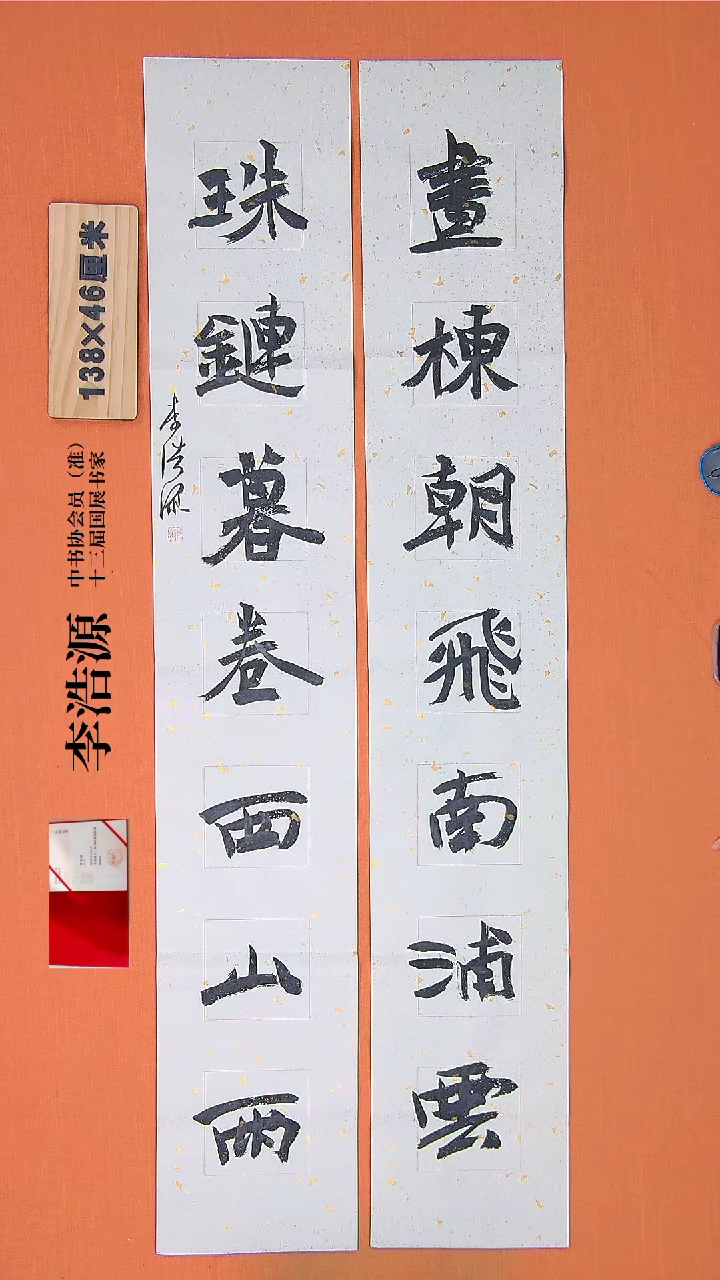 畫棟朝飛南浦雲
珠鏈暮卷西山雨
李浩源
138×46厘米
中书协会员（准）
十三届国展书家
李浩源